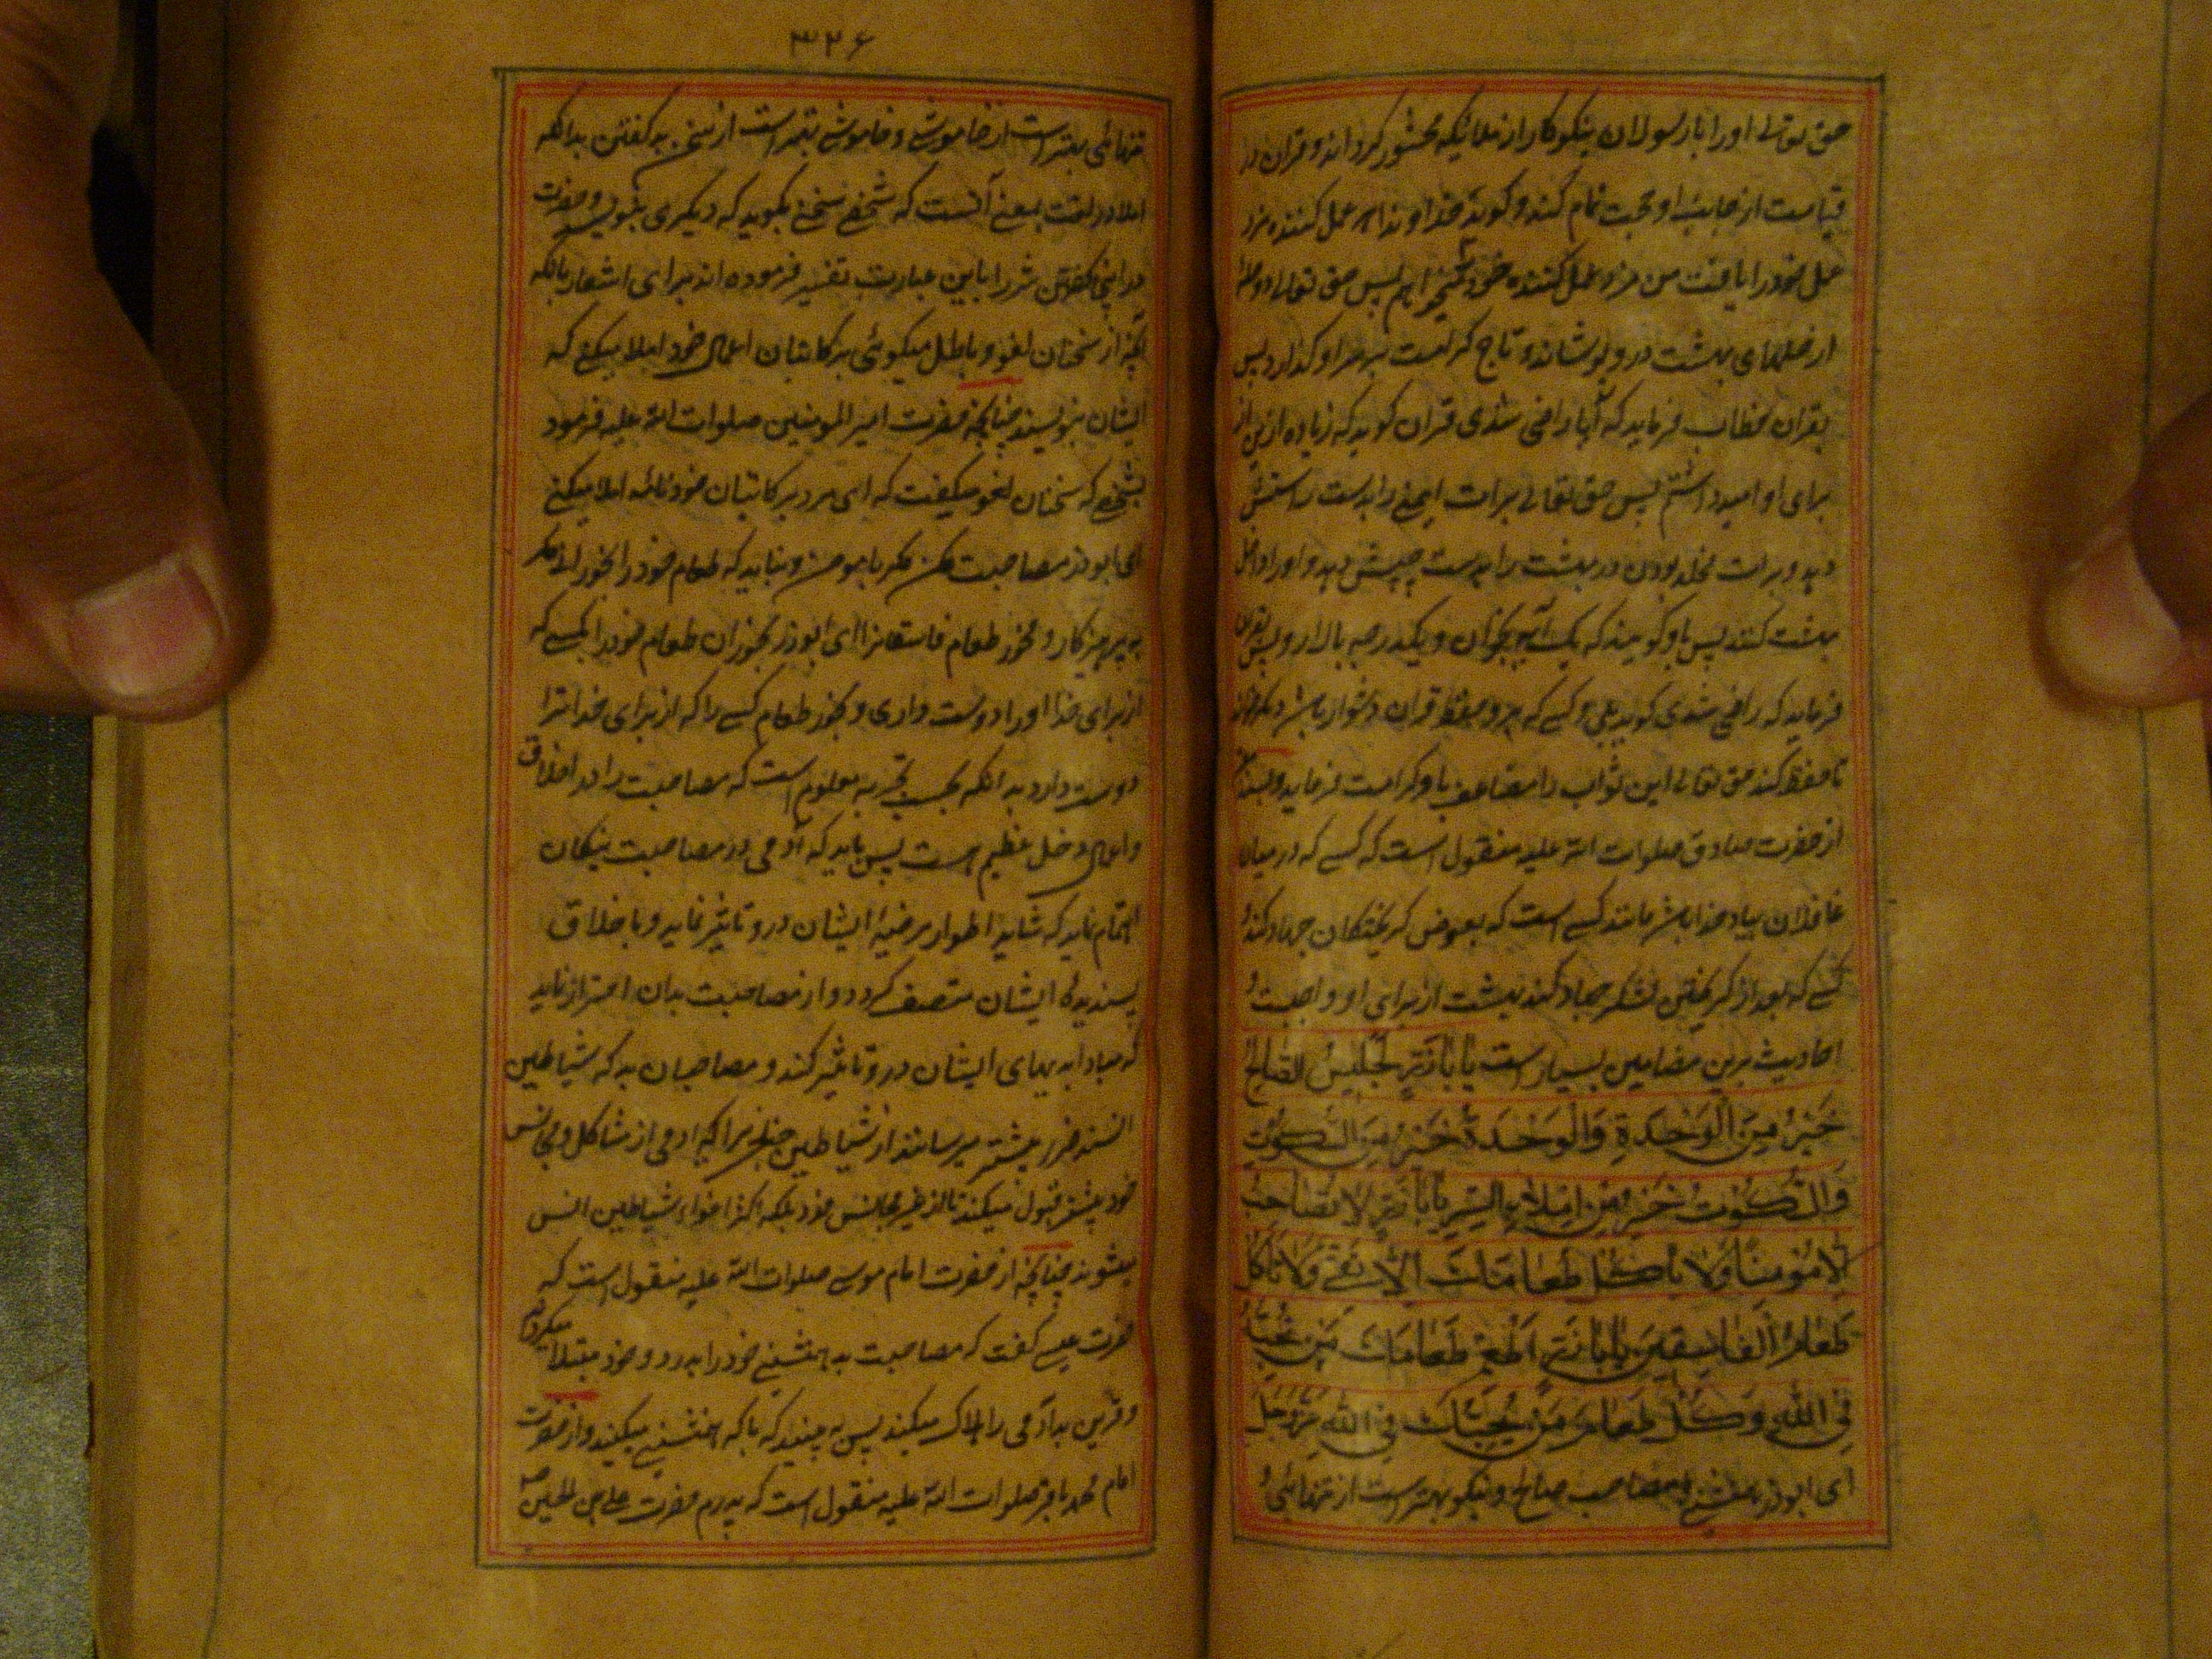 حق تعالی او را با رسولان نیکوکار از ملائکه محشور گرداند و قران در
قیامت از جانب او حجت تمام کند و گوید خداوندا هر عمل کننده مزد
عمل خود را یافت من مزد عمل کننده خود میخواهم پس حق تعالی دو حله
از حلهای بهشت درو پوشاند و تاج کرامت بر سر او گذارد پس
بقران خطاب فرماید که آیا راضی شدی قران گوید که زیاده ازین از
برای او امید داشتم پس حق تعالی برات ایمنی را بدست راستش
دهد و برات مخلد بودن در بهشت را بدست چپش دهد و او را داخل
بهشت کنند پس باو گویند که یک آیه بخوان و یکدرجه بالا رو پس بقران
فرماید که راضی شدی گوید بلی و کسی که برو حفظ قران دشوار باشد
تا حفظ کند حق تعالی این ثواب را مضاعف باو کرامت فرماید
از حضرت صادق صلوات الله علیه منقول است که کسی که در میان
غافلان بیاد خدا باشد مانند کسی است که بعوض گریختگان جهاد کند و
کسی که بعد از گریختن لشکر جهاد کند بهشت از برای او واجبست و
احادیث برین مضامین بسیار است یا اباذر الجلیس الصالح
خیر من الوحدة والوحدة خیر من السکوت
والسکوت خیر من املاء الشر یا اباذر لا تصاحب
الا مؤمنا ولا یاکل طعامک الا تقی ولا تاکل
طعام الفاسقین یا اباذر اطعم طعامک من تحبه
فی الله وکل طعام من یحبک فی الله عزوجل
ای ابوذر همنشین و مصاحب صالح و نیکو بهتر است از تنهائی و
۳۲۶
تنهائی بهتر است از خاموشی و خاموشی بهتر است از سخن بد گفتن بدانکه
املا در لغت بمعنی آنست که شخصی سخنی بگوید که دیگری بنویسد و حضرت
در اینجا گفتن شر را باین عبارت تفسیر فرموده اند برای اشعار بانکه
آنچه از سخنان لغو و باطل میگوئی بر کاتبان اعمال خود املا میکنی که
ایشان بنویسند چنانچه حضرت امیر المومنین صلوات الله علیه فرمود
بشخصی که سخنان لغو میگفت که ای مرد بر کاتبان خود نامه املا میکنی
ای ابوذر مصاحبت مکن مگر با مومن و نباید که طعام خود را بخورانی مگر
به پرهیزکار و مخور طعام فاسقانرا ای ابوذر بخوران طعام خود را بکسی که
از برای خدا او را دوست داری و بخور طعام کسی را که از برای خدا ترا
دوست دارد بدانکه بحسب تجربه معلوم است که مصاحبت را در اخلاق
و اعمال دخل عظیم هست پس باید که آدمی در مصاحبت نیکان
اهتمام نماید که شاید اطوار مرضیه ایشان درو تاثیر نماید و باخلاق
پسندیده ایشان متصف گردد و از مصاحبت بدان احتراز نماید
که مبادا بدیهای ایشان درو تاثیر کند و مصاحبان بد که شیاطین
انسند ضرر بیشتر میرسانند از شیاطین جن زیرا که آدمی از مشاکل و مجانس
خود بیشتر قبول میکند تا از غیر مجانس خود بلکه اکثر اغواء شیاطین انس
میشوند چنانچه از حضرت امام موسی صلوات الله علیه منقول است که
حضرت عیسی گفت که مصاحبت بد همنشین خود را بدرد خود مبتلا میگرداند
و قرین بد آدمی را هلاک میکند پس به بینید که با که همنشینی میکنید و از حضرت
امام محمد باقر صلوات الله علیه منقول است که پدرم حضرت علی بن الحسین